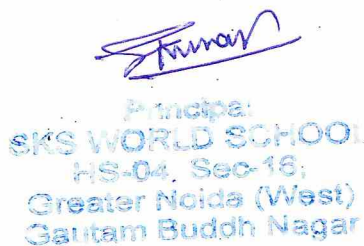 SKumar
Principal
SKS WORLD SCHOOL
HS-04, Sec-16,
Greater Noida (West)
Gautam Buddh Nagar